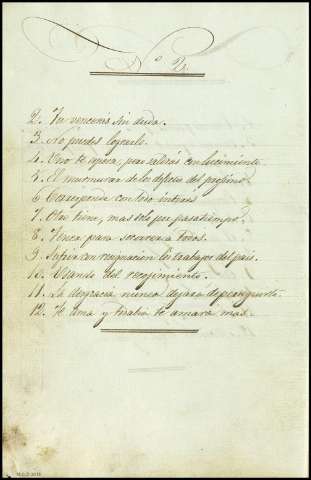 Nº 2.
2. Tu vencerás sin duda.
3. No puedes lograrlo.
4. Uno te espera, pero saldrás con lucimiento.
5. El murmurar de los defectos del progimo.
6. Corresponde con todo interes
7. Otro tiene, mas solo por pasatiempo.
8. Tenea para socorrer a todos.
9. Sufrir con resignacion los trabajos del pais.
10. Usando del recojimiento.
11. La desgracia nunca dejara de perseguirte.
12. Te ama y todavia te amara mas.